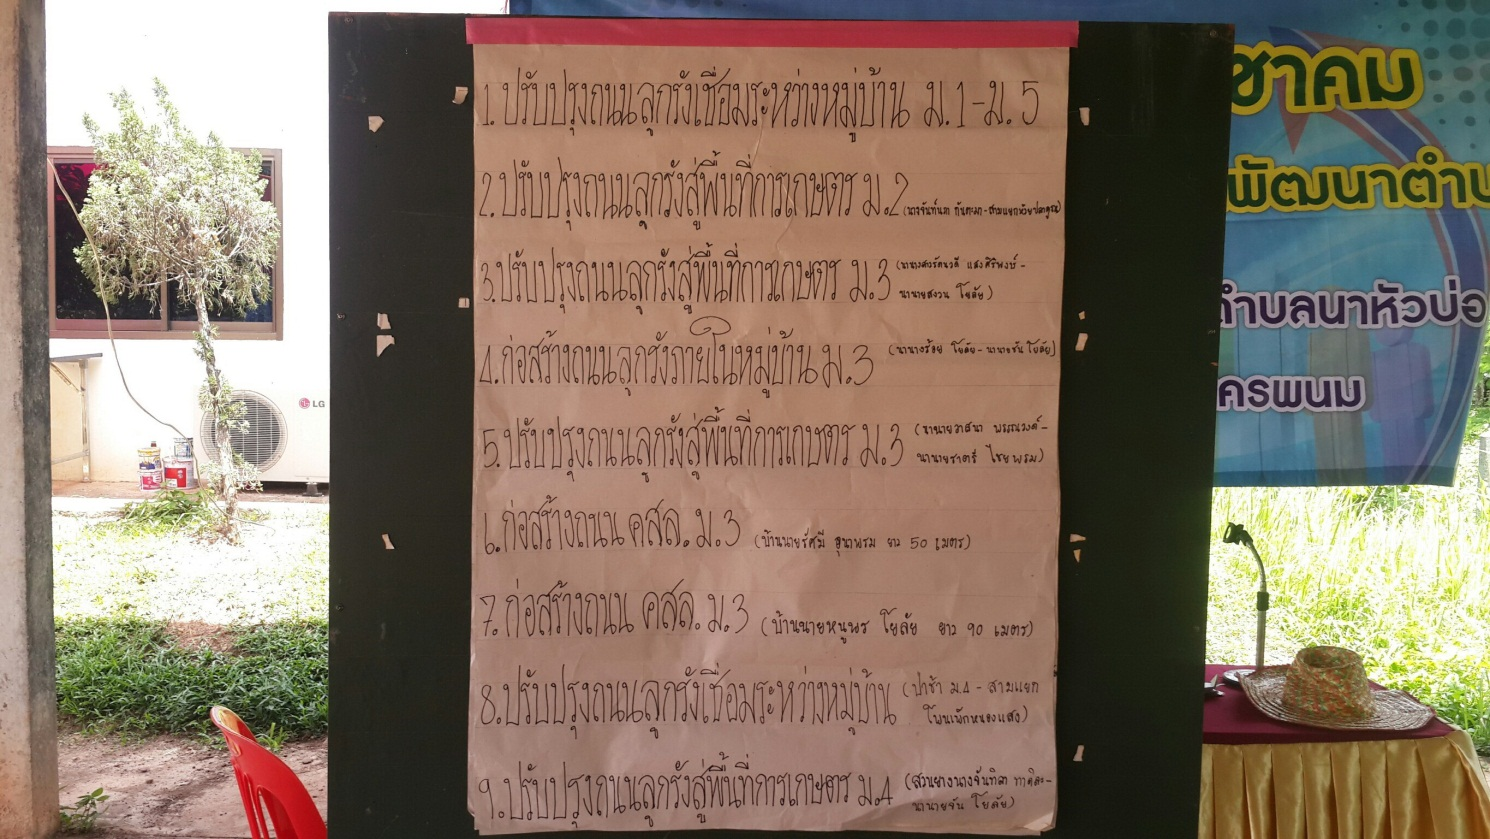 1. ปรับปรุงถนนลูกรังเชื่อมระหว่างหมู่บ้าน ม.1-ม.5
2. ปรับปรุงถนนลูกรังสู่พื้นที่การเกษตร ม.2
3. ปรับปรุงถนนลูกรังสู่พื้นที่การเกษตร ม.3
นานายสงวน โยลัย)
4. ก่อสร้างถนนลูกรังภายในหมู่บ้าน ม.3 (นานางร้อย โยลัย-นานายชัน โยลัย)
5. ปรับปรุงถนนลูกรังสู่พื้นที่การเกษตร ม.3 (นานายวาสนา พรรณวงค์-
นานายราตรี ไชยพรม)
6. ก่อสร้างถนน คสล. ม.3 (บ้านนายรัศมี ยาว 50 เมตร)
7. ก่อสร้างถนน คสล. ม.3 (บ้านนายหนูพร โยลัย ยาว 90 เมตร)
8. ปรับปรุงถนนลูกรังเชื่อมระหว่างหมู่บ้าน (ป่าช้า ม.4 - สามแยก
โพนเพ็กหนองแสง)
9. ปรับปรุงถนนลูกรังสู่พื้นที่การเกษตร ม.4 (สวนยางนางจันทิลา
นานายจัน โยลัย)
ชาคม
พัฒนาตำบ
ตำบลนาหัวบ่อ
ครพนม
LG